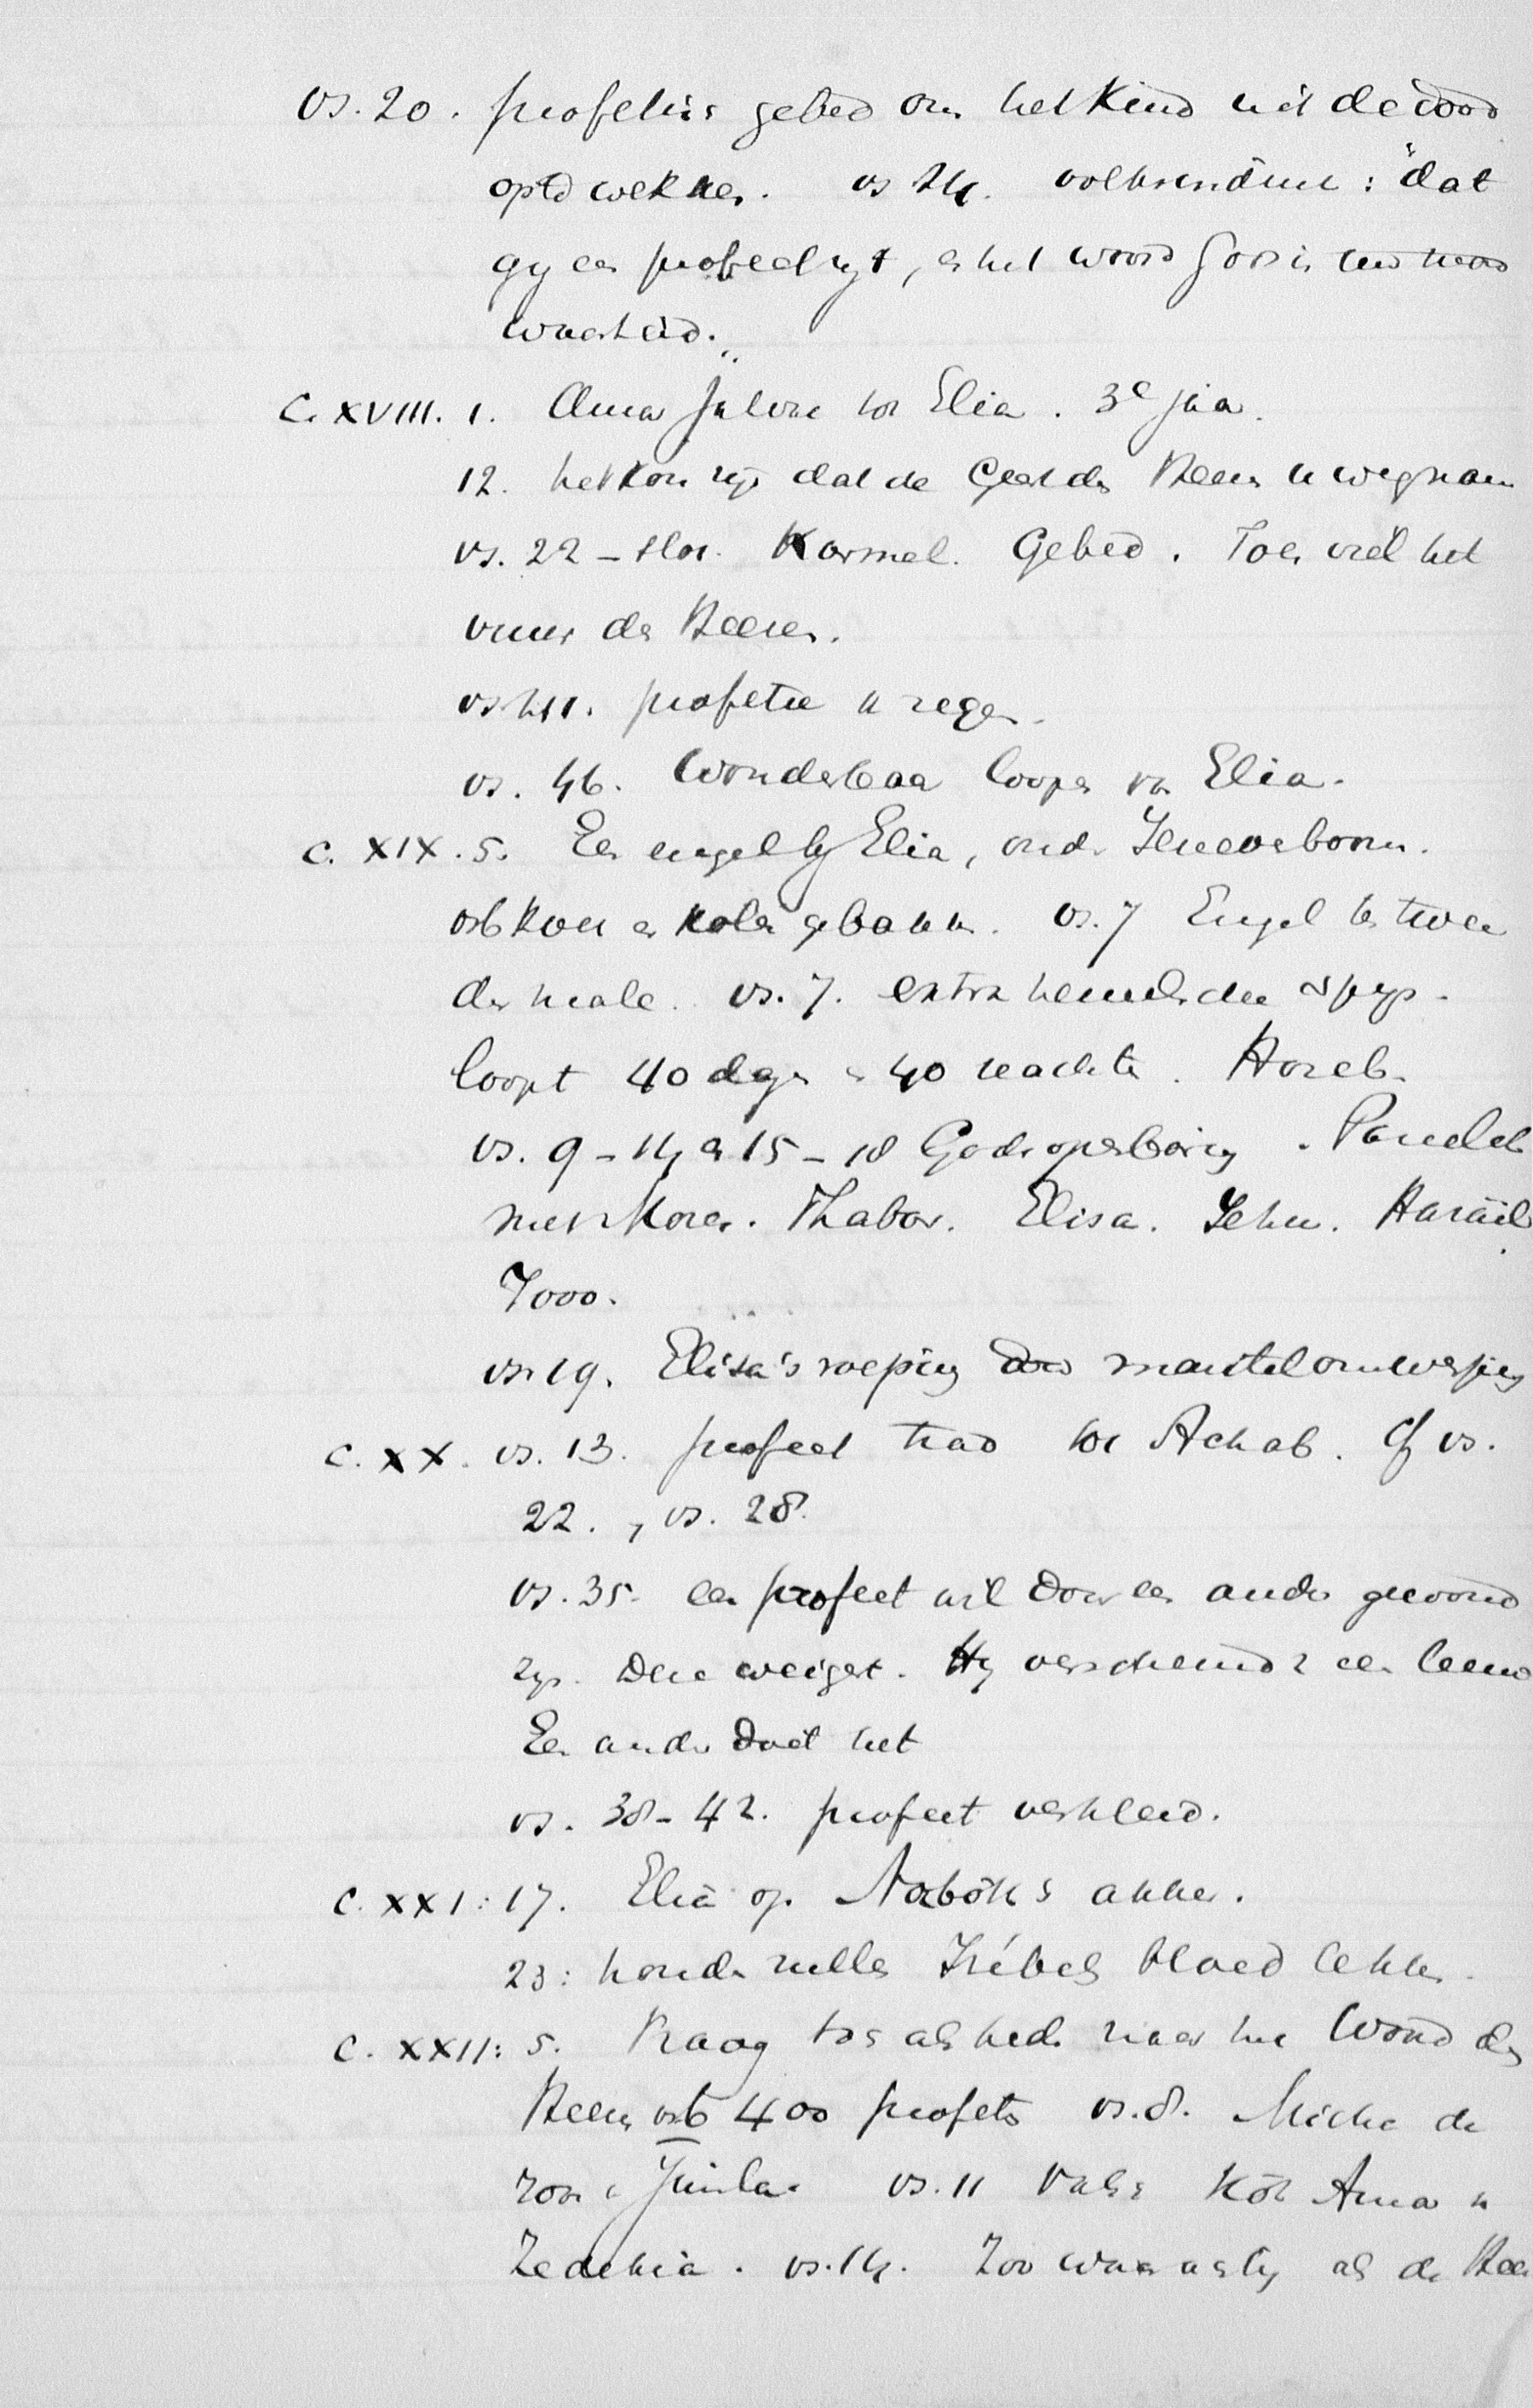 vs. 20. profetis gebed om het kind uit de dood
op te wekken. vs 24. : "dat
gij een profeet zijt, en het woord Gods in uw mond
waarheid."
C. XVIII. 1. Amar Jahve tot Elia. 3e jaar.
12. het kon zijn dat de Geest des Heeren u wegnam
vs. 22 - slot. Karmel. Gebed. Toen viel het
vuur des Heeren.
vs 41. profetie v regen.
vs. 46. Wonderbaar loopen van Elia.
C. XIX. 5. Een engel bij Elia, onder Jeneverboom.
vs 6 koek en kolen gebakken. vs. 7 Engel ten tweede
der male. vs. 7. extra hemelsche spijs.
loopt 40 dagen en 40 nachten. Horeb.
vs. 9 - 14 en 15 - 18 Godsopenbaring. Parallel
met Mozes. Thabor. Elisa. Jehu. Hazaël
7000.
vs. 19. Elisa's roeping door mantelomwerping
C. XX. vs. 13. profeet trad tot Achab. Cf vs.
22., vs. 28.
vs. 35. een profeet wil door een ander gewond
zijn. Deze weigert. Hij verscheurd d een leeuw
Een ander doet het
vs. 38 - 42. profeet verkleed.
C. XXI: 17. Elia op Naboth's akker.
23: honden zullen Izébels bloed lekken.
C. XXII: 5. Vraag toch als heden naar het Woord des
Heeren vs 6 400 profeten vs. 8. Micha de
zoon v Jimla. vs. 11 Valse Kôh Amar v
Zedekia. vs. 14. Zoo waarachtig als de Heer